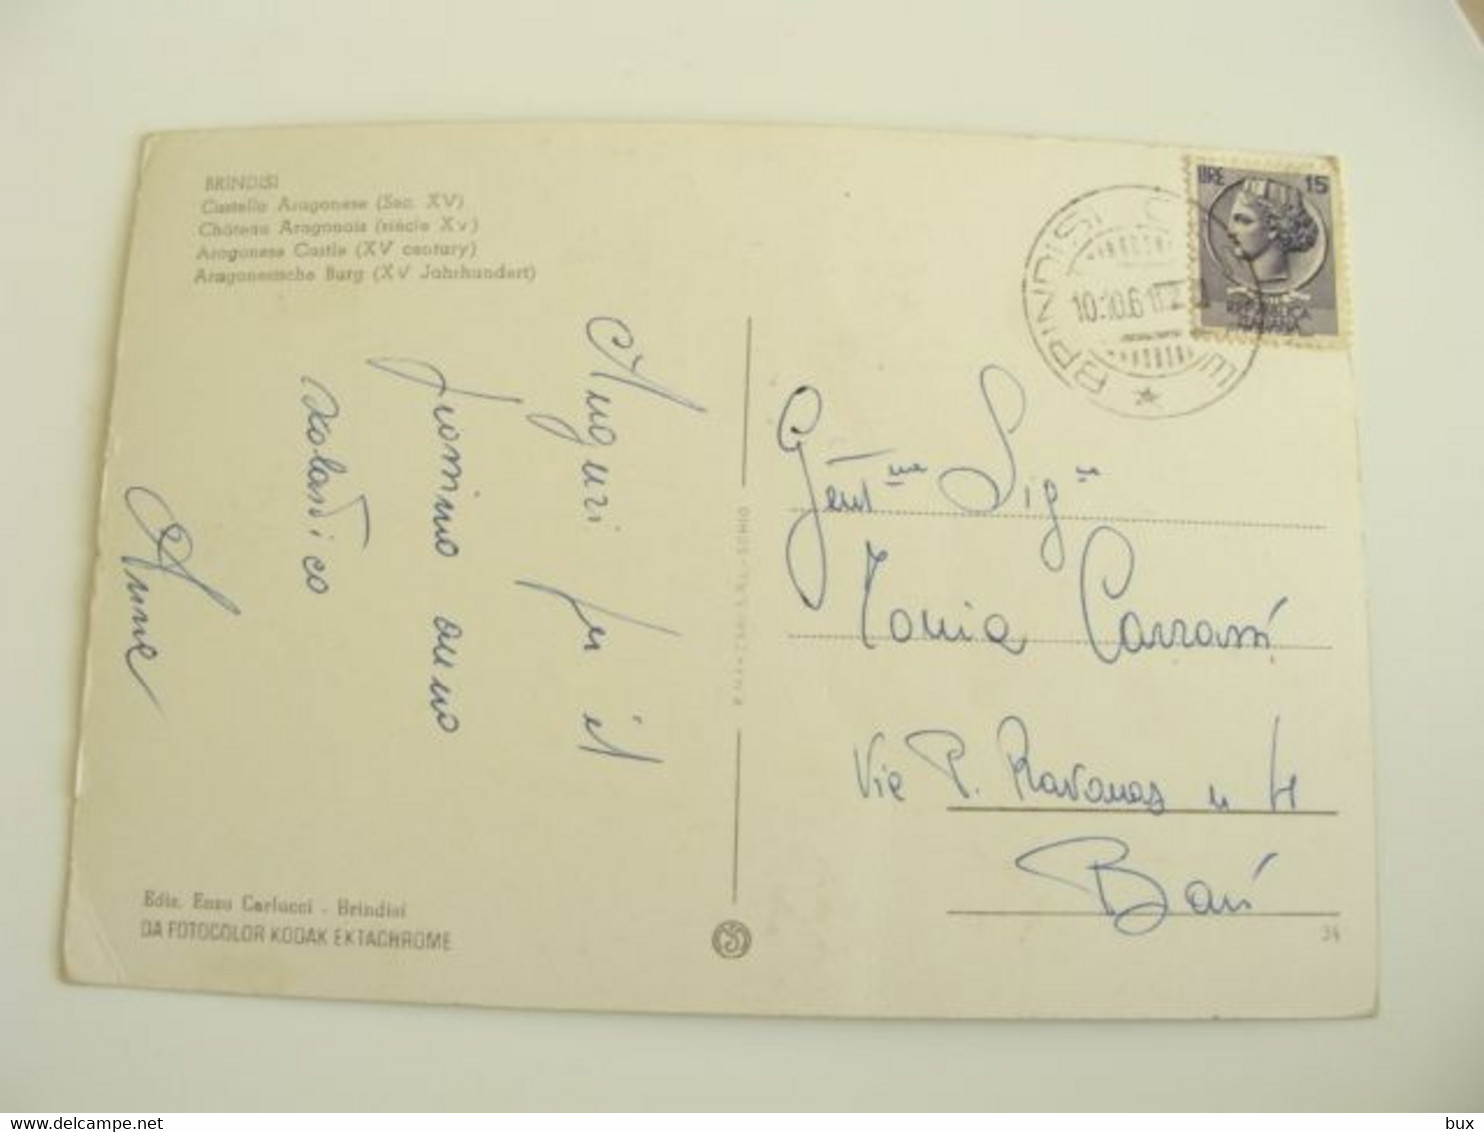 BRINDISI
Castello Aragonese (Sec. XV)
Château Aragonais (siècle XV)
Aragonese Castle (XV century)
Aragonesische Burg (XV Jahrhundert)
LIRE 15
REPUBBLICA
ITALIANA
BRINDISI
10.10.6
Auguri per il
prossimo anno
scolastico
Anne
Gent.me Sig.
Tonia Carrassi
Via P. Ravanas n 4
Bari
Ediz. Enzo Carlucci - Brindisi
DA FOTOCOLOR KODAK EKTACHROME
34
bux